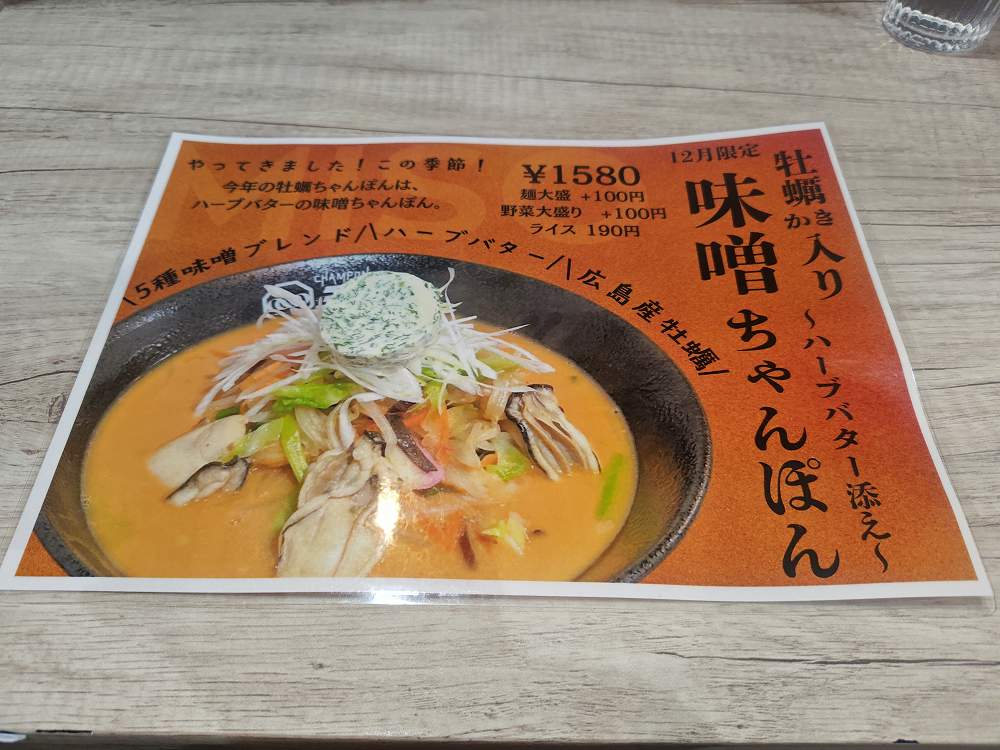 12月限定
牡蠣かき入り
～ハーブバター添え～
味噌ちゃんぽん
やってきました！この季節！
今年の牡蠣ちゃんぽんは、
ハーブバターの味噌ちゃんぽん。
¥1580
麺大盛 +100円
野菜大盛り +100円
ライス 190円
\5種味噌ブレンド/\ハーブバター/\広島産牡蠣/
CHAMPON